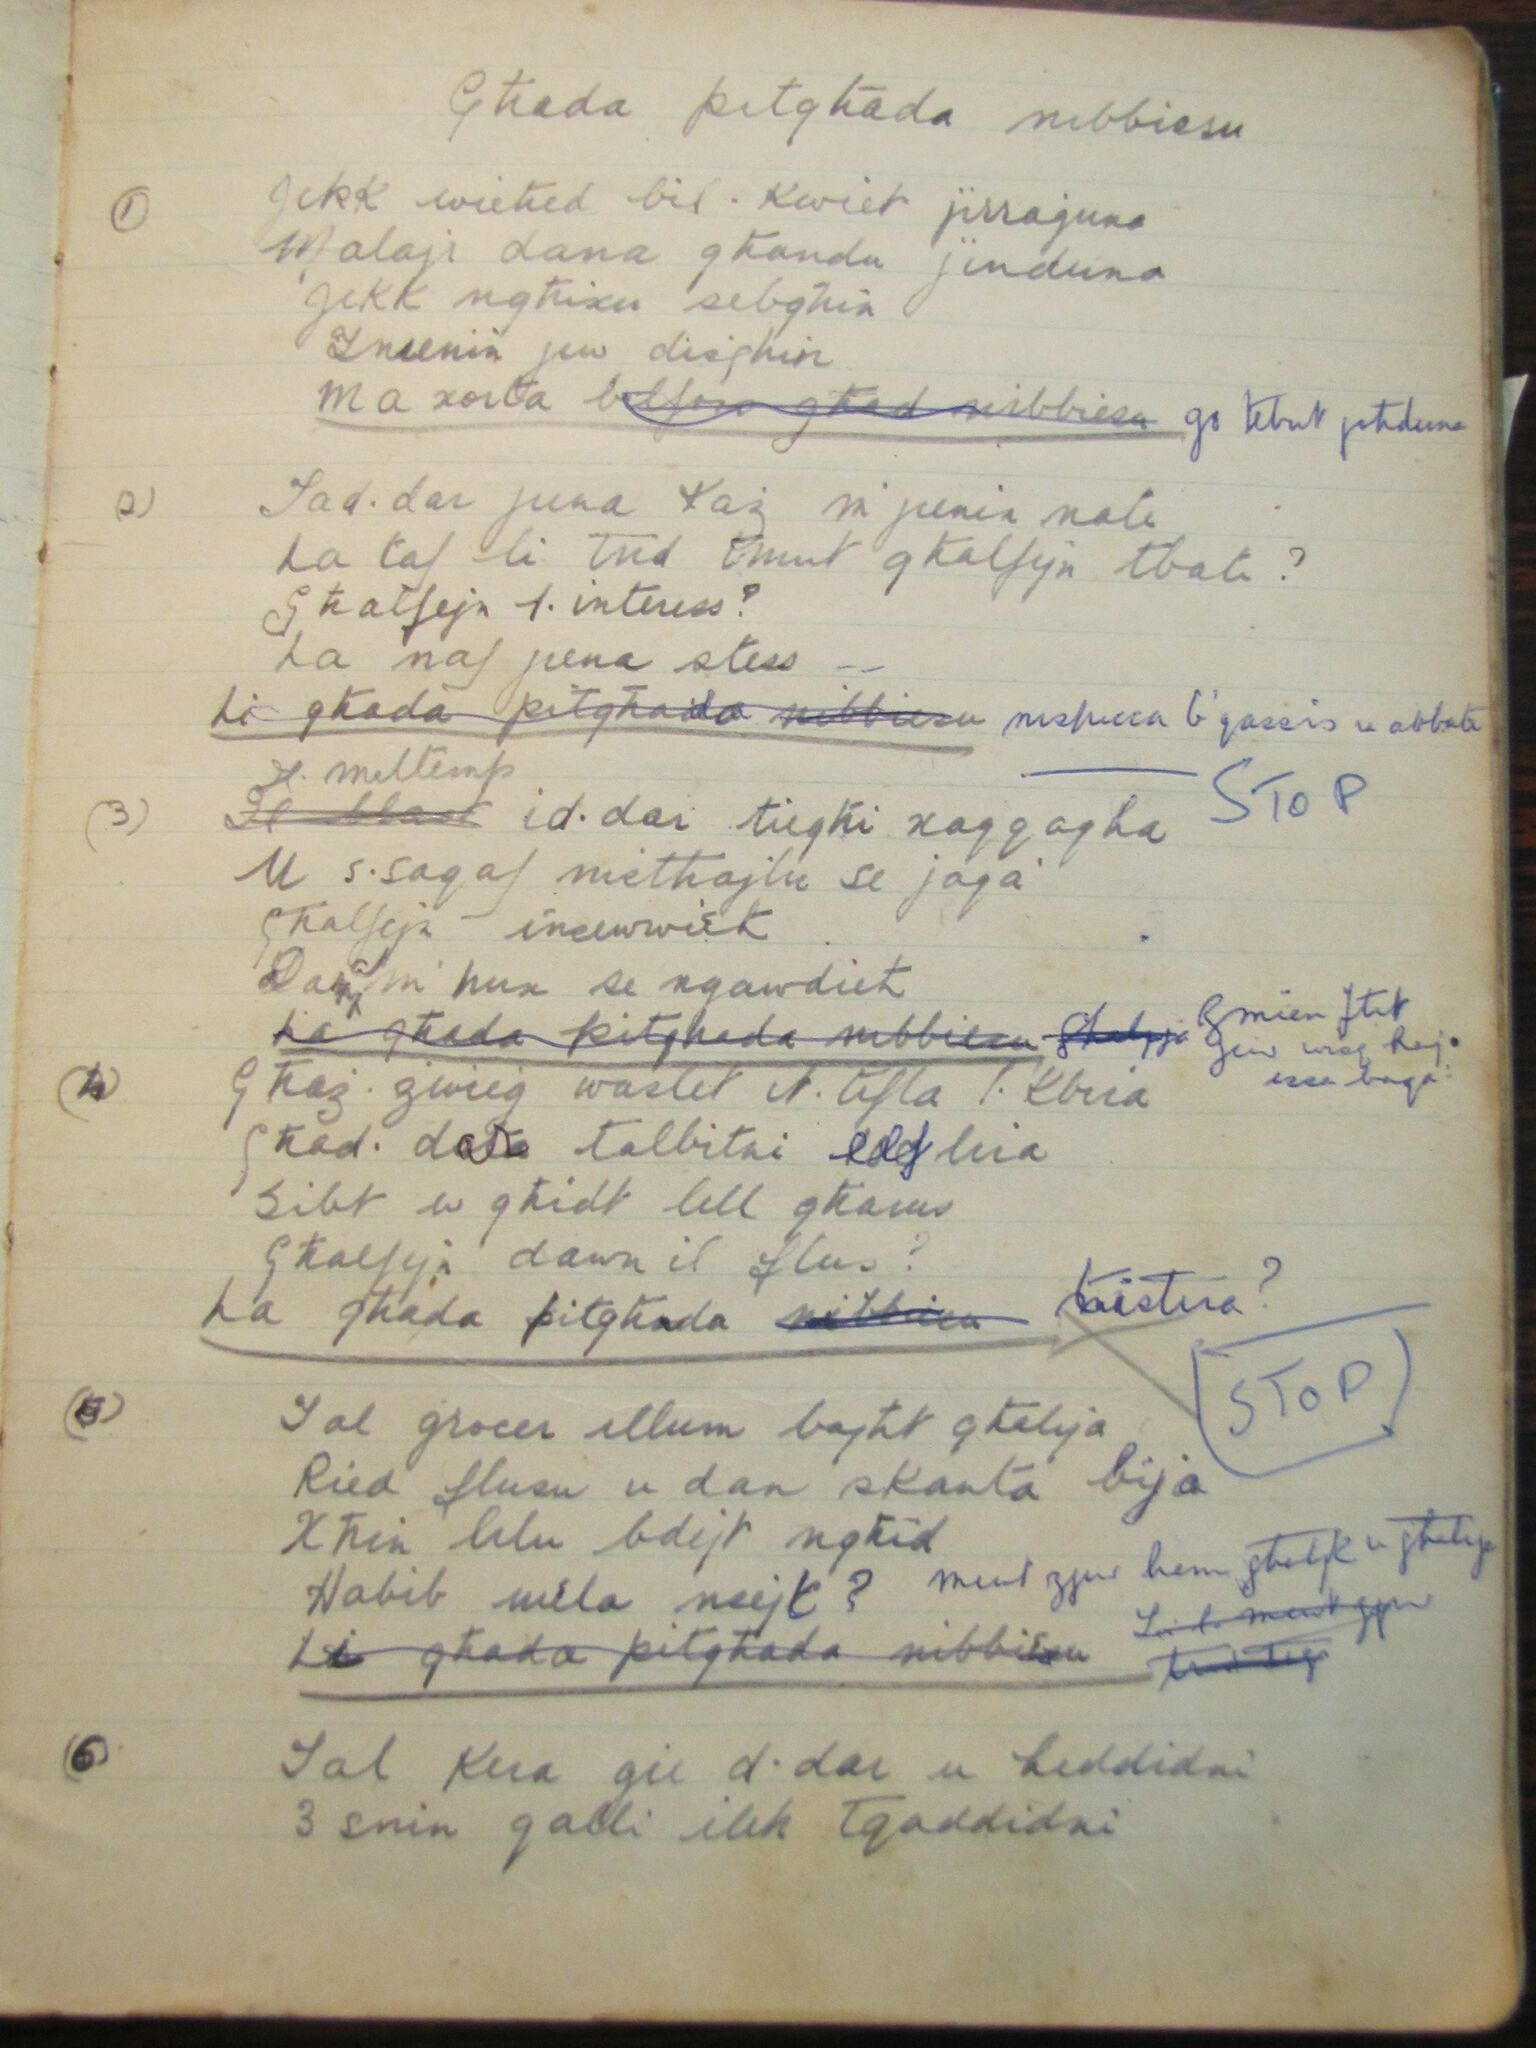 Għada pitgħada nibbiesu
(1) Jekk wieħed bil-kwiet jirraġuna
Malajr dana għandu jinduna
Jekk ngħixu sebgħin
Tnienin jew disgħin
Ma xorta belfors għad nibbiesu go tebut jotduna
2) Tad-dar jiena kaz m'jienin nati
La taf li trid tmut għalfejn tbati?
Għalfejn l-interess?
La naf jiena stess --
Li għada pitgħada nibbiesu nispicca b'qassis u abbati
STOP
Il-meltemp
(3) Il- id-dar tiegħi xaqqaqha
U s-saqaf nistħajlu se jaqa'
Għalfejn insewwieh
Dan m'hux se ngawdieh
La għada pitgħada nibbiesu Għalija Zmien ftit
jew
issa baqa'
(4) Għaż-żwieġ waslet it-tifla l-kbira
Għad-dota talbitni elf lira
Sibt u għidt lill għarus
Għalfejn dawn il flus?
La għada pitgħada nibbiesu taistira?
STOP
(5) Tal grocer illum bagħt għalija
Ried flusu u dan skanta bija
Ħħin lilu bdejt ngħid
Habib mela nsejt? mmut zgur hemm għalik u għalija
Li għada pitgħada nibbiesu
(6) Tal kera ġie d-dar u heddidni
3 snin qalli ilek tgaddidni